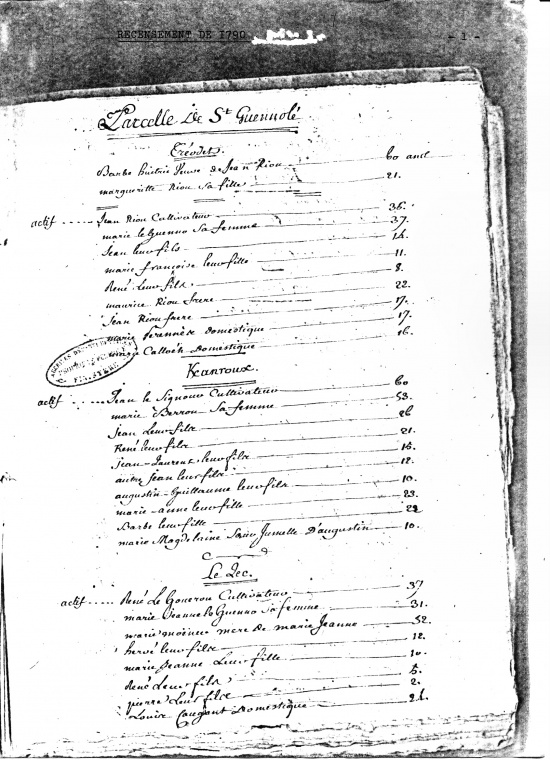 RECENSEMENT DE 1790
- 1 -
Parcelle De St Guennolé
Créodet.
Barbe Veuve de Jean Riou 60 ans
margueritte Riou Sa fille 21.
actif Jean Riou Cultivateur 36.
marie le Guenno Sa femme 37.
Jean leur fils 14.
marie françoise leur fille 11.
René Leur fils 8.
maurice Riou frere 22
Jean Riou frere 17.
marie Perennès Domestique 17.
marie Calloch Domestique 16.
FINISTERE
Keanroux.
actif Jean le Signour Cultivateur 60
marie Berrou Sa femme 53.
jean Leur fils 26
René leur fils 21.
jean-Laurent leur fils 15.
autre jean leur fils 12.
augustin-Guillaume leur fils 10.
marie-anne leur fille 23.
Barbe leur fille 22
marie Magdelaine Saeur Jumelle D'augustin 10.
Le Zec.
actif René Le Goueron Cultivateur 37
marie Jeanne le Guenno Sa femme 31.
marie mere de marie Jeanne 52.
hervé leur fils 12.
marie Jeanne Leur fille 10.
René Leur fils 5.
pierre Leur fils 2.
Louise Domestique 21.